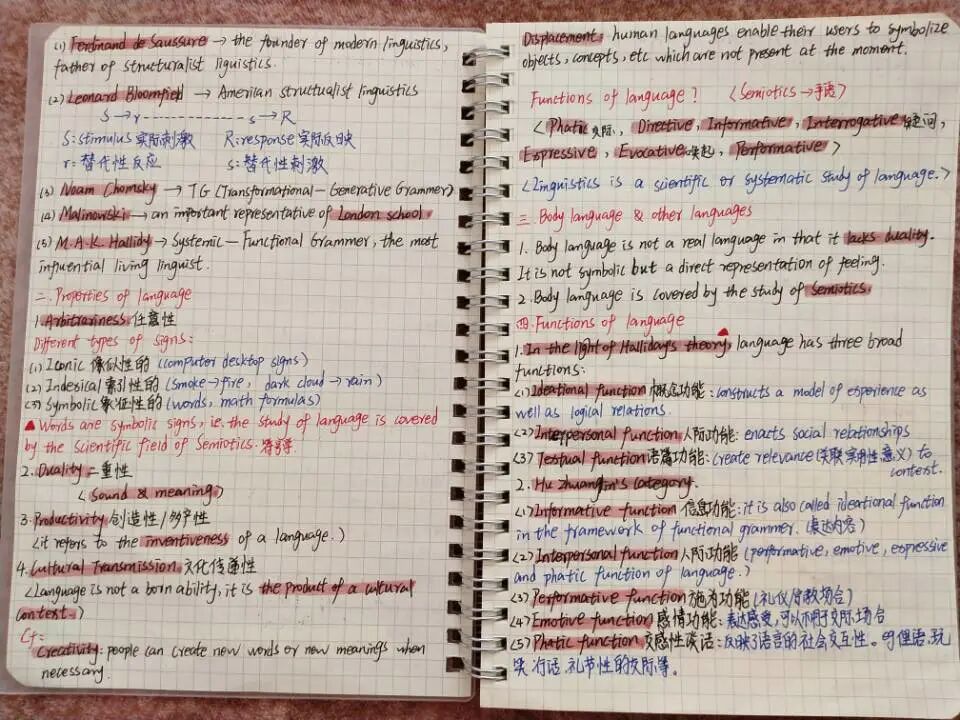 (1) Ferdinand de Saussure → the founder of modern linguistics,
father of structuralist liguistics.
(2) Leonard Bloomfield → American structualist linguistics
S → r ------------- s → R
S: stimulus 实际刺激 R: response 实际反映
r: 替代性反应 s: 替代性刺激
(3) Noam Chomsky → TG (Transformational-Generative Grammer)
(4) Malinowski → an important representative of London school.
(5) M.A.K. Hallidy → Systemic-Functional Grammer, the most
influential living linguist.
二. Properties of language
1. Arbitrariness 任意性
Different types of signs:
(1) Iconic 像似性的 (computer desktop signs)
(2) Indexical 索引性的 (smoke→fire, dark cloud→rain)
(3) Symbolic 象征性的 (words, math formulas)
▲ Words are symbolic signs, i.e. the study of language is covered
by the scientific field of Semiotics. 符号学
2. Duality 二重性
< Sound & meaning >
3. Productivity 创造性/多产性
<it refers to the inventiveness of a language.>
4. Cultural Transmission 文化传递性
<Language is not a born ability, it is the product of a cultural
context.>
Cf:
Creativity: people can create new words or new meanings when
necessary.
Displacement: human languages enable their users to symbolize
objects, concepts, etc which are not present at the moment.
Functions of language? <Semiotics → 手语>
< Phatic 交际, Directive, Informative, Interrogative 疑问,
Expressive, Evocative 唤起, Performative >
<Linguistics is a scientific or systematic study of language.>
三. Body language & other languages
1. Body language is not a real language in that it lacks duality.
It is not symbolic but a direct representation of feeling.
2. Body language is covered by the study of Semiotics.
四. Functions of language
1. In the light of Halliday's theory, language has three broad
functions:
(1) Ideational function 概念功能: constructs a model of experience as
well as logical relations.
(2) Interpersonal function 人际功能: enacts social relationships
(3) Textual function 语篇功能: create relevance (关联 实用性 意义) to
context.
2. Hu Zhuanglin's category.
(1) Informative function 信息功能: it is also called ideational function
in the framework of functional grammer. (表达内容)
(2) Interpersonal function 人际功能 (performative, emotive, expressive
and phatic function of language.)
(3) Performative function 施为功能 (礼仪/宗教场合)
(4) Emotive function 感情功能: 表达感受, 可以不用于交际场合
(5) Phatic function 交感性谈话: 反映了语言的社会交互性。 俚语、玩
笑、行话、礼节性的交际等。